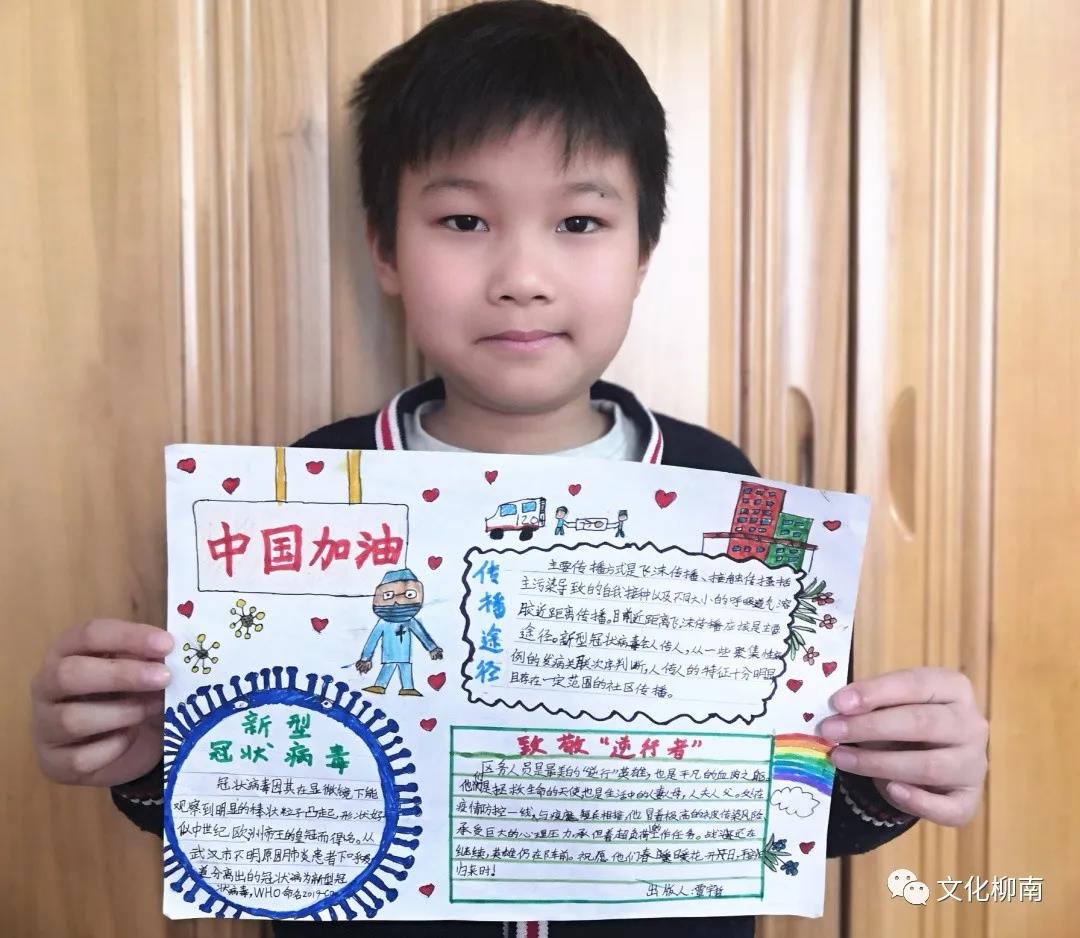 中国加油
120
传播途径
主要传播方式是飞沫传播、接触传播
主污染导致的自我接种以及不同大小的呼吸道气溶
胶近距离传播。目前近距离飞沫传播应该是主要
途径。新型冠状病毒会人传人，从一些聚集性
例的发病关联次序判断，人传人的特征十分明显
且存在一定范围的社区传播。
新型
冠状病毒
冠状病毒因其在显微镜下能
观察到明显的棒状粒子凸起，形状好
似中世纪，欧洲帝王的皇冠而得名。从
武汉市不明原因肺炎患者下呼吸
道分离出的冠状病为新型冠
状病毒，WHO命名2019-
致敬“逆行者”
区务人员是最美的“逆行”英雄，也是平凡的血肉之躯
他们是拯救生命的天使也是生活中的人妻母，人夫人父。处在
疫情防控一线，与疫魔短兵相接，他冒着极高的被传染风险
承受巨大的心理压力，承担着超负荷工作任务。战还在
继续，英雄仍在阵前。祝愿他们春暖花开日，
归来时！
出版人：
文化柳南